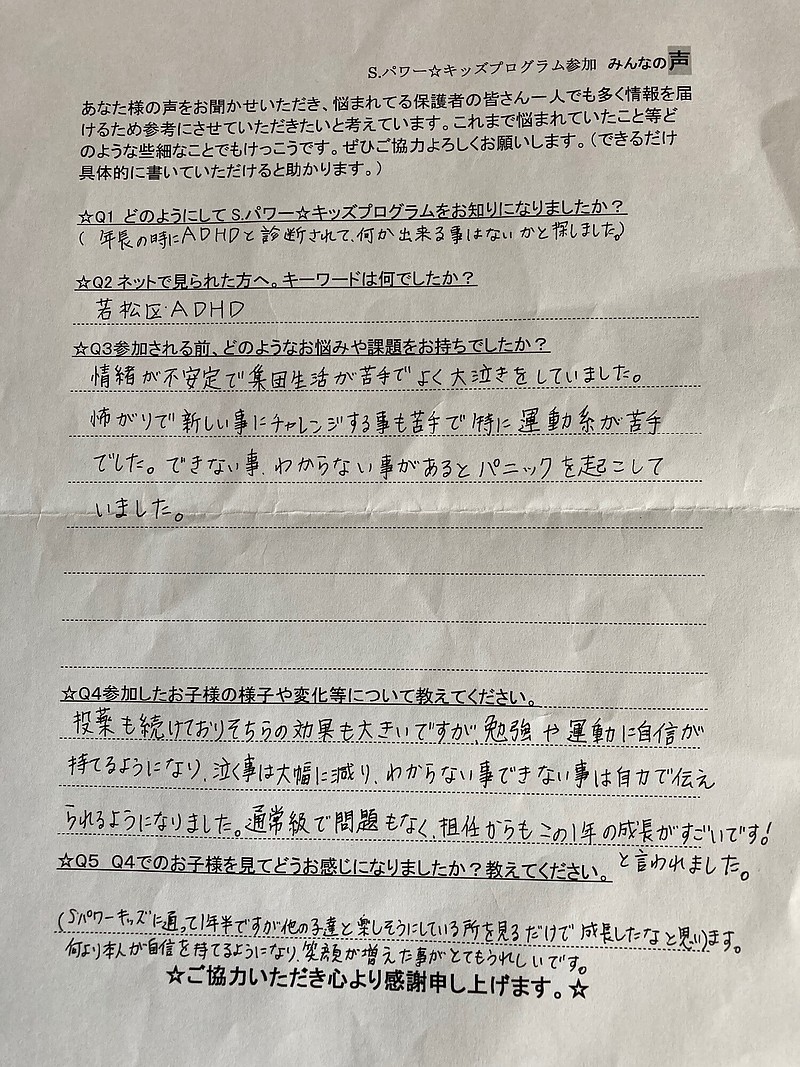 S.パワー☆キッズプログラム参加 みんなの声
あなた様の声をお聞かせいただき、悩まれてる保護者の皆さん一人でも多く情報を届
けるため参考にさせていただきたいと考えています。これまで悩まれていたこと等ど
のような些細なことでもけっこうです。ぜひご協力よろしくお願いします。（できるだけ
具体的に書いていただけると助かります。）
☆Q1 どのようにしてS.パワー☆キッズプログラムをお知りになりましたか？
( 年長の時にADHDと診断されて、何か出来る事はないかと探しました。)
☆Q2ネットで見られた方へ。キーワードは何でしたか？
若松区・ADHD
☆Q3参加される前、どのようなお悩みや課題をお持ちでしたか？
情緒が不安定で集団生活が苦手でよく大泣きをしていました。
怖がりで新しい事にチャレンジする事も苦手で特に運動系が苦手
でした。できない事、わからない事があるとパニックを起こして
いました。
☆Q4参加したお子様の様子や変化等について教えてください。
投薬も続けておりそちらの効果も大きいですが、勉強や運動に自信が
持てるようになり、泣く事は大幅に減り、わからない事できない事は自力で伝え
られるようになりました。通常級で問題もなく、担任からもこの1年の成長がすごいです！
と言われました。
☆Q5 Q4でのお子様を見てどうお感じになりましたか？教えてください。
(Sパワーキッズに通って1年半ですが他の子達と楽しそうにしている所を見るだけで成長したなと思います。
何より本人が自信を持てるようになり、笑顔が増えた事がとてもうれしいです。
☆ご協力いただき心より感謝申し上げます。☆